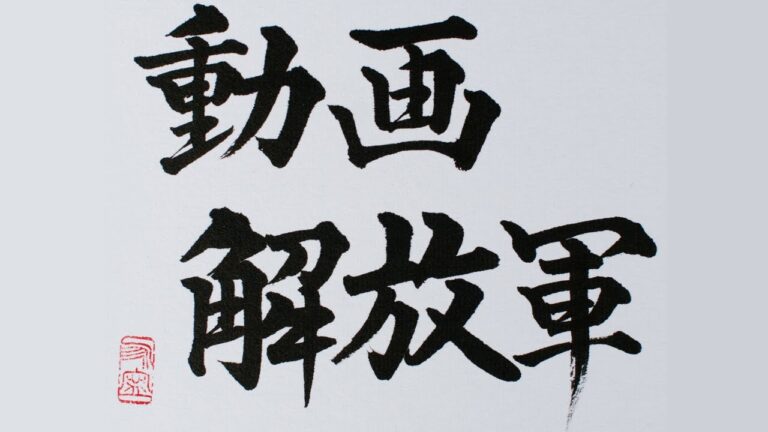 動画
解放軍